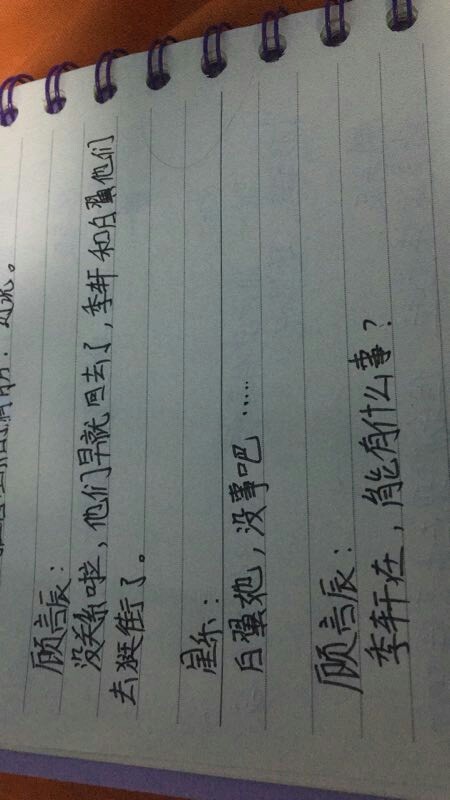 顾言辰：
没关系啦，他们早就回去了，季轩和白翼他们
去逛街了。
白翼他，没事吧……
顾言辰：
季轩在，能有什么事？